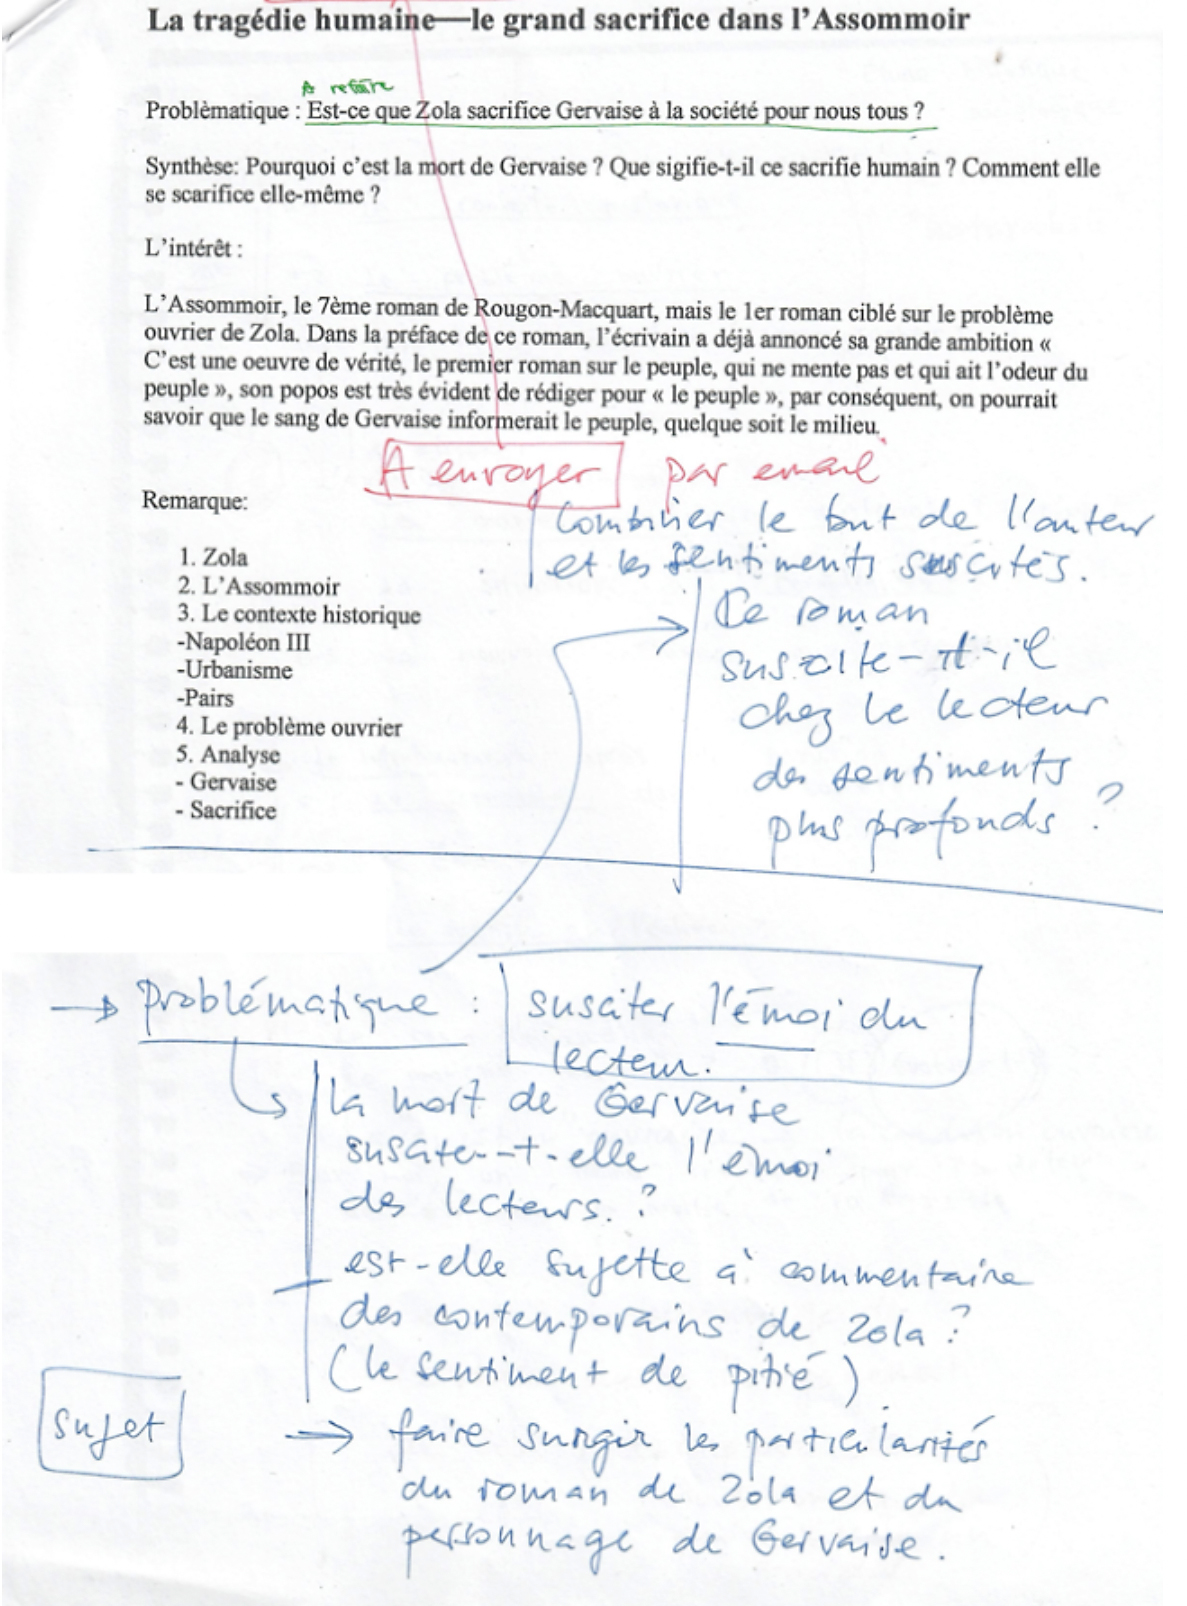 La tragédie humaine—le grand sacrifice dans l'Assommoir
A refaire
Problèmatique : Est-ce que Zola sacrifice Gervaise à la société pour nous tous ?
Synthèse: Pourquoi c'est la mort de Gervaise ? Que sigifie-t-il ce sacrifie humain ? Comment elle
se scarifice elle-même ?
L'intérêt :
L'Assommoir, le 7ème roman de Rougon-Macquart, mais le 1er roman ciblé sur le problème
ouvrier de Zola. Dans la préface de ce roman, l'écrivain a déjà annoncé sa grande ambition «
C'est une oeuvre de vérité, le premier roman sur le peuple, qui ne mente pas et qui ait l'odeur du
peuple », son popos est très évident de rédiger pour « le peuple », par conséquent, on pourrait
savoir que le sang de Gervaise informerait le peuple, quelque soit le milieu.
A envoyer par email
Remarque:
Combiner le but de l'auteur
et les sentiments suscités.
1. Zola
2. L'Assommoir
3. Le contexte historique
-Napoléon III
-Urbanisme
-Pairs
4. Le problème ouvrier
5. Analyse
- Gervaise
- Sacrifice
Ce roman
suscite-t-il
chez le lecteur
des sentiments
plus profonds ?
→ Problématique : susciter l'émoi du
lecteur.
la mort de Gervaise
suscite-t-elle l'émoi
des lecteurs ?
est-elle sujette à commentaire
des contemporains de Zola ?
(le sentiment de pitié)
sujet → faire surgir les particularités
du roman de Zola et du
personnage de Gervaise.